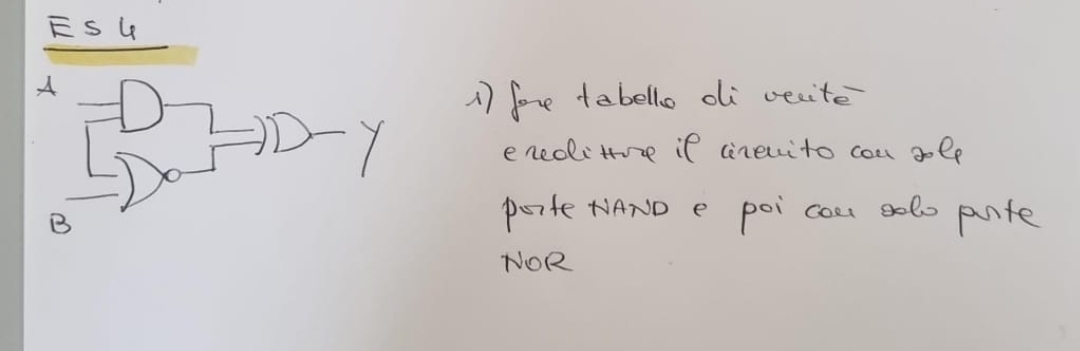 ES 4
A
B
Y
1) fare tabella di verità
e ridisegnare il circuito con sole
porte NAND e poi con solo porte
NOR